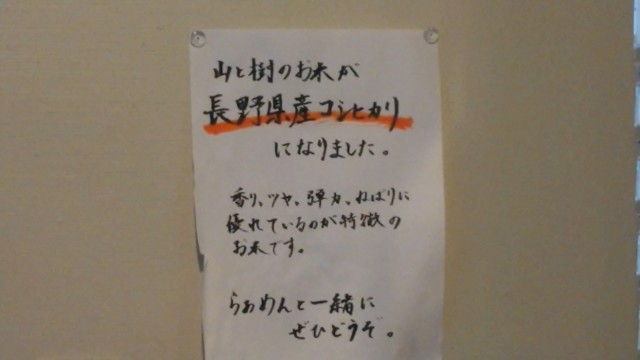 山と樹のお米が
長野県産コシヒカリ
になりました。
香り、ツヤ、弾力、ねばりに
優れているのが特徴の
お米です。
らぁめんと一緒に
ぜひどうぞ。